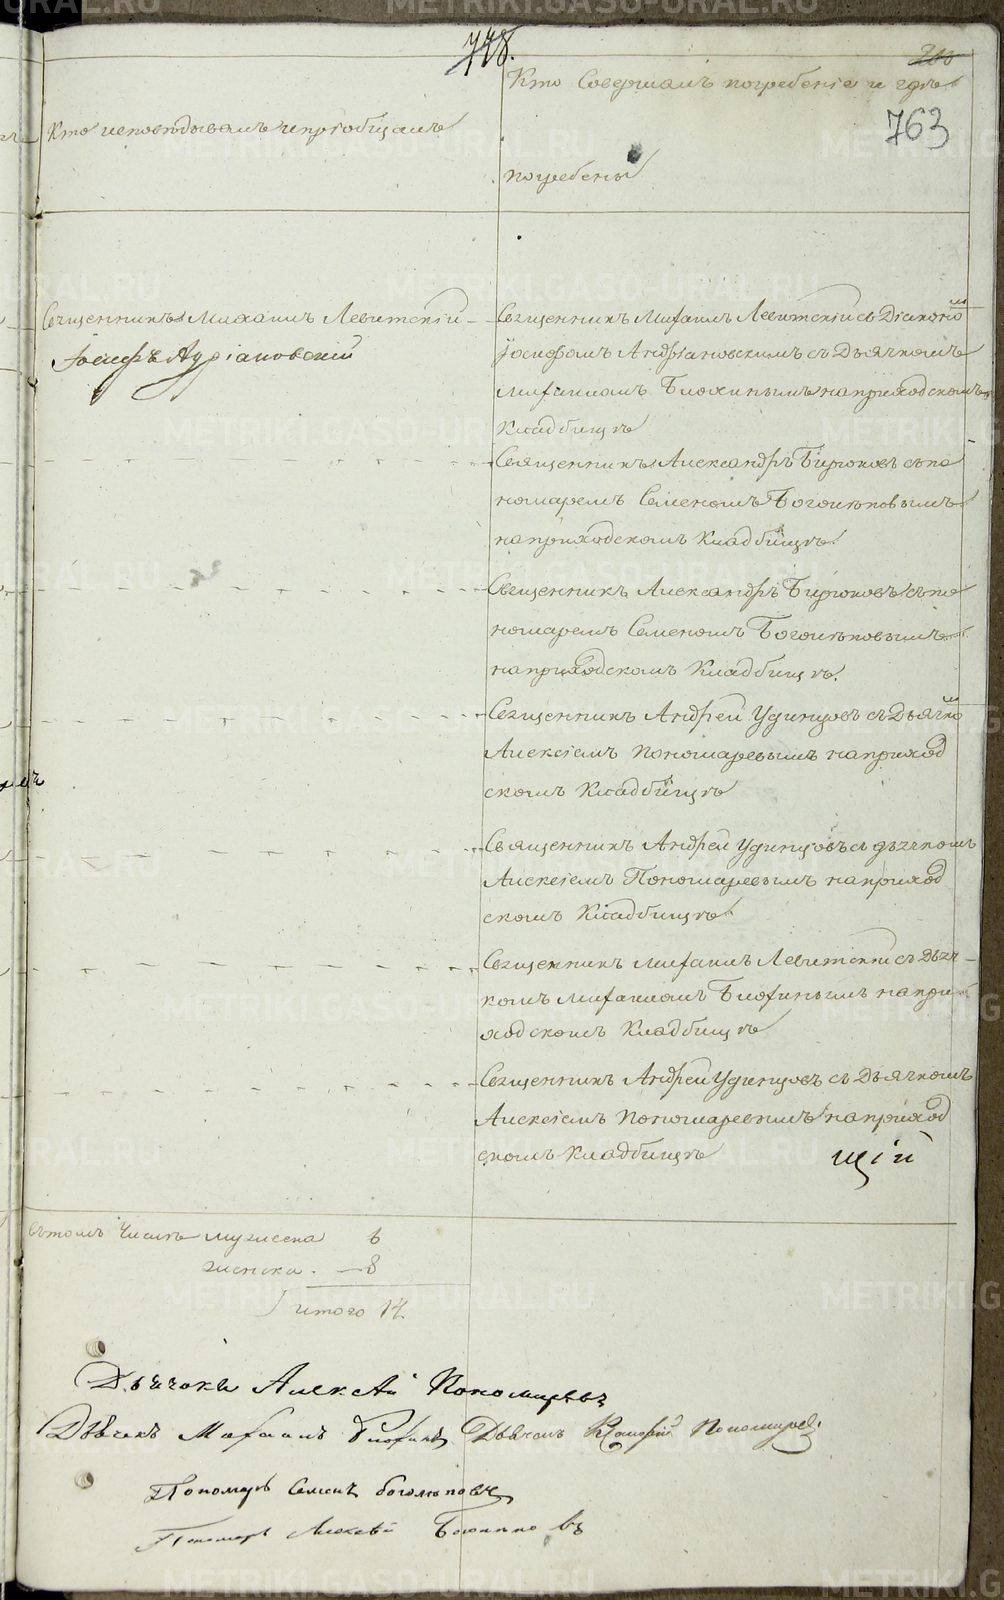 778.
763
Кто исповѣдывалъ и пріобщалъ
Кто совершалъ погребеніе и гдѣ
погребены
Священникъ Михаилъ Левитскій
Іосифъ Андріановскій
Священникъ Михаилъ Левитскій съ Діакономъ
Іосифомъ Андріановскимъ съ Дьячкомъ
Михаиломъ Блохинымъ на приходскомъ
Кладбищѣ
Священникъ Александръ Бирюковъ съ по
номаремъ Семеномъ Боголѣповымъ
на приходскомъ Кладбищѣ.
Священникъ Александръ Бирюковъ съ по
номаремъ Семеномъ Боголѣповымъ
на приходскомъ Кладбищѣ.
Священникъ Андрей Удинцовъ съ Дьячкомъ
Алексіемъ Пономаревымъ на приход
скомъ Кладбищѣ
Священникъ Андрей Удинцовъ съ дьячкомъ
Алексіемъ Пономаревымъ на приход
скомъ Кладбищѣ
Священникъ Михаилъ Левитскій съ Дьяч
комъ Михаиломъ Блохинымъ на при
ходскомъ Кладбищѣ
Священникъ Андрей Удинцовъ съ Дьячкомъ
Алексіемъ Пономаревымъ на приход
скомъ Кладбищѣ
щій
въ томъ числѣ мужеска 6
женска. — 8
итого 14
Дьячокъ Алексѣй Пономаревъ
Дьячекъ Михаилъ Блохинъ Дьячекъ Пономаревъ
Пономарь Семенъ Боголѣповъ
Пономарь Алексѣй
METRIKI.GASO-URAL.RU